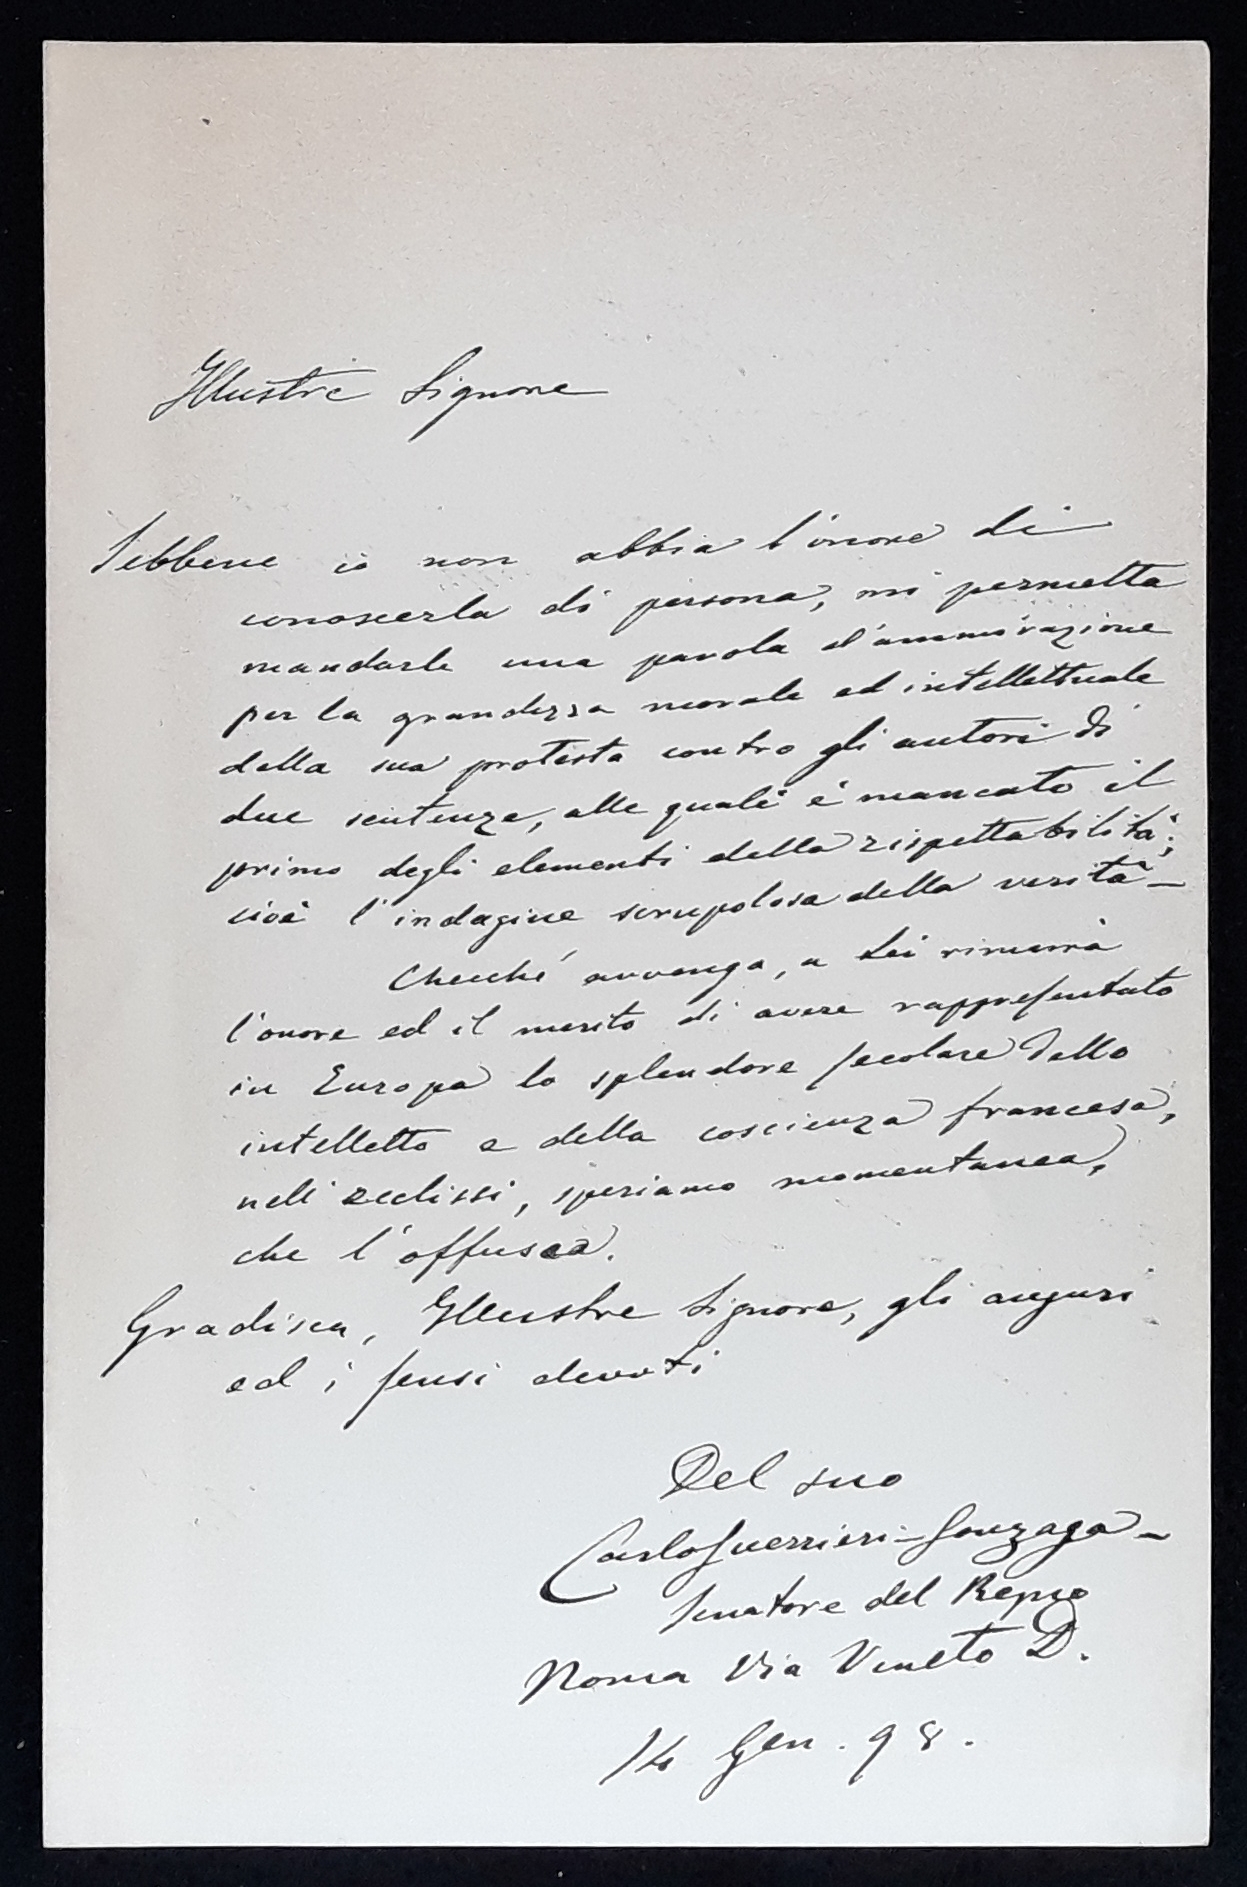 Illustre Signore
Sebbene io non abbia l'onore di
conoscerla di persona, mi permetta
mandarle una parola d'ammirazione
per la grandezza morale ed intellettuale
della sua protesta contro gli autori di
due sentenze, alle quali è mancato il
primo degli elementi della rispettabilità;
cioè l'indagine scrupolosa della verità –
Checché avvenga, a Lei rimarrà
l'onore ed il merito di avere rappresentato
in Europa lo splendore secolare dello
intelletto e della coscienza francese,
nell'ecclissi, speriamo momentanea,
che l'offusca.
Gradisca, Illustre Signore, gli auguri
ed i sensi devoti
Del suo
Carlo Guerrieri-Gonzaga –
Senatore del Regno
Roma Via Veneto D.
14 Gen. 98.